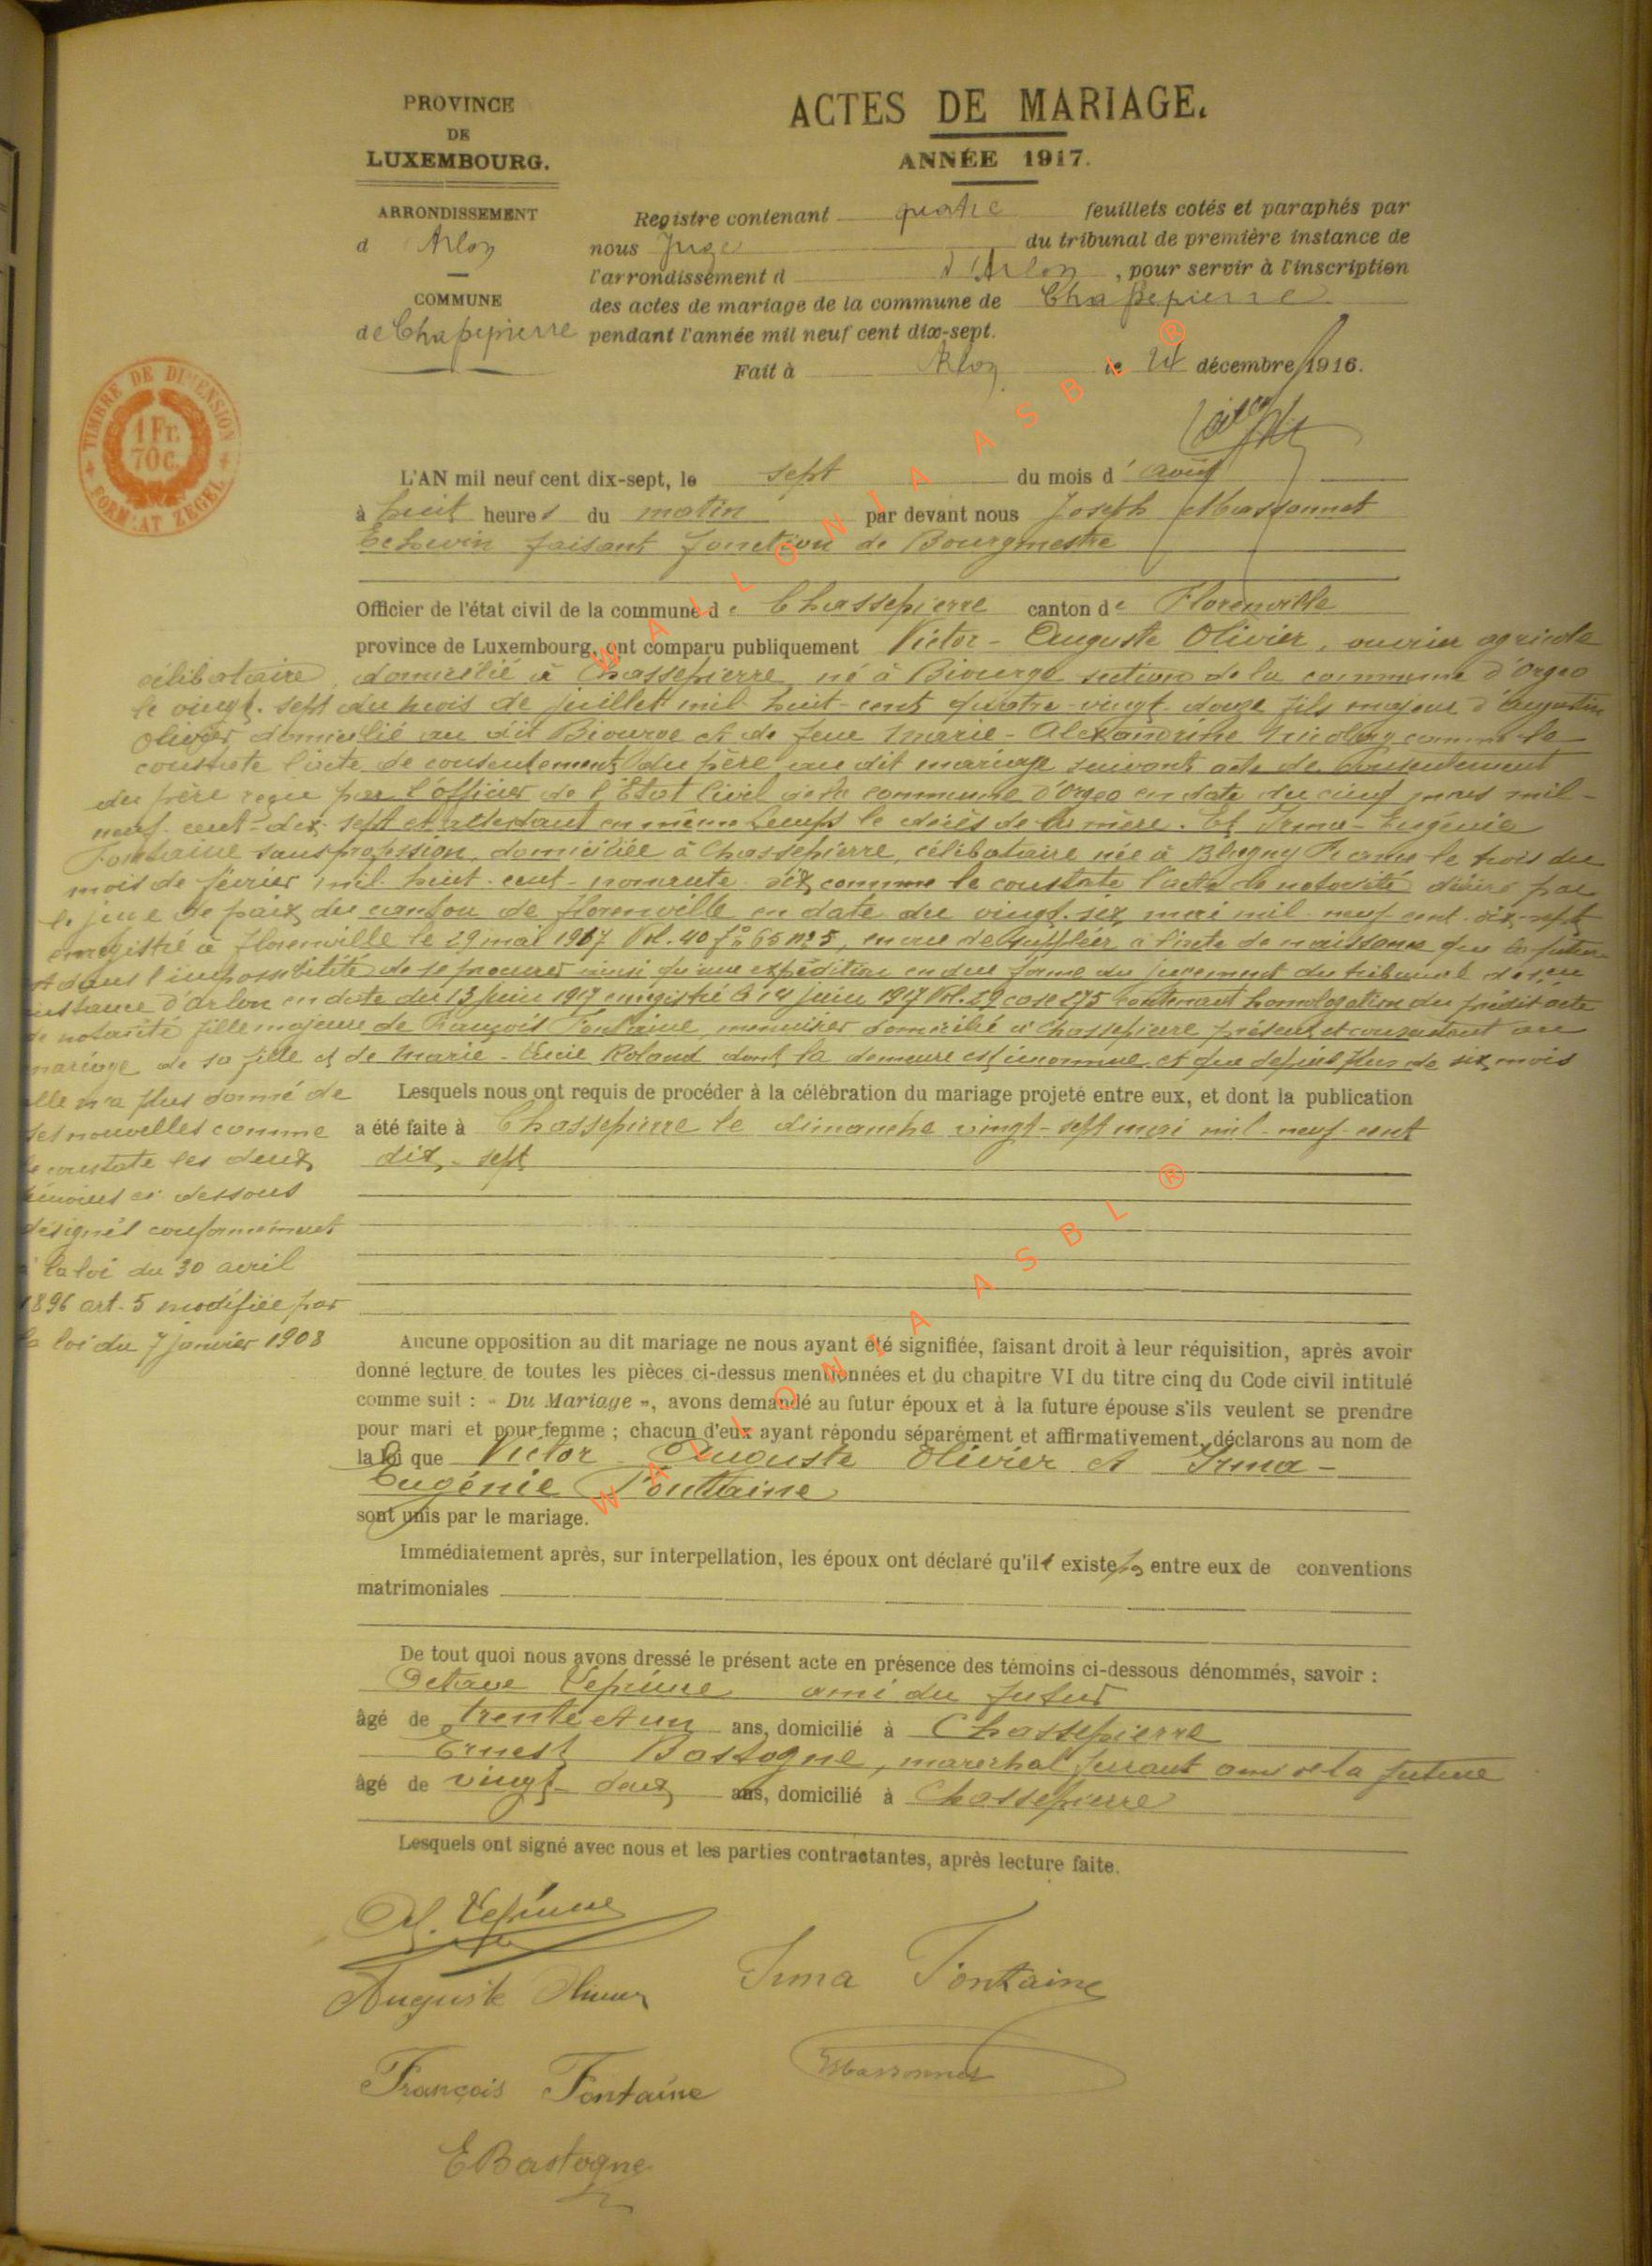 PROVINCE
DE
LUXEMBOURG.
ARRONDISSEMENT
d Arlon
COMMUNE
de Chassepierre
ACTES DE MARIAGE.
ANNÉE 1917.
Registre contenant quatre feuillets cotés et paraphés par
nous Juge du tribunal de première instance de
l'arrondissement d d'Arlon, pour servir à l'inscription
des actes de mariage de la commune de Chassepierre
pendant l'année mil neuf cent dix-sept.
Fait à Arlon le 24 décembre 1916.
TIMBRE DE DIMENSION
1 Fr.
70 c.
FORMAAT ZEGEL
L'AN mil neuf cent dix-sept, le sept du mois d'août
à huit heures du matin par devant nous Joseph Massonnet
Echevin faisant fonction de Bourgmestre
Officier de l'état civil de la commune de Chassepierre canton de Florenville
province de Luxembourg, ont comparu publiquement Victor-Auguste Olivier, ouvrier agricole
célibataire, domicilié à Chassepierre né à Biourge section de la commune d'Orgeo
le vingt-sept du mois de juillet mil-huit-cent quatre-vingt-douze fils majeur d'Augustin
Olivier domicilié au dit Biourge et de feue Marie-Alexandrine comme le
constate l'acte de consentement du père au dit mariage suivant acte de consentement
du père reçu par l'officier de l'Etat Civil de la commune d'Orgeo en date du cinq mars mil-
neuf-cent-dix-sept et attestant en même temps le décès de la mère. Et Irma-Eugénie
Fontaine sans profession, domiciliée à Chassepierre, célibataire née à Blagny France le trois du
mois de février mil-huit-cent-nonante-six comme le constate l'acte de notoriété délivré par
le juge de paix du canton de Florenville en date du vingt-six mai mil-neuf-cent-dix-sept
enregistré à Florenville le 29 mai 1917 Vol. 40 fo 65 no 5, en vue de suppléer à l'acte de naissance que la future
est dans l'impossibilité de se procurer ainsi qu'une expédition en due forme du jugement du tribunal de 1ère
instance d'Arlon en date du 13 juin 1917 enregistré le 14 juin 1917 Vol. 29 case 275 contenant homologation du prédit acte
de notoriété fille majeure de François Fontaine, menuisier domicilié à Chassepierre présent et consentant au
mariage de sa fille et de Marie-Lucie Roland dont la demeure est inconnue et que depuis plus de six mois
elle n'a plus donné de
ses nouvelles comme
le constate les deux
témoins ci dessous
désignés conformément
à la loi du 30 avril
1896 art. 5 modifiée par
la loi du 7 janvier 1908
Lesquels nous ont requis de procéder à la célébration du mariage projeté entre eux, et dont la publication
a été faite à Chassepierre le dimanche vingt-sept mai mil-neuf-cent
dix-sept
Aucune opposition au dit mariage ne nous ayant été signifiée, faisant droit à leur réquisition, après avoir
donné lecture de toutes les pièces ci-dessus mentionnées et du chapitre VI du titre cinq du Code civil intitulé
comme suit : « Du Mariage », avons demandé au futur époux et à la future épouse s'ils veulent se prendre
pour mari et pour femme ; chacun d'eux ayant répondu séparément et affirmativement, déclarons au nom de
la loi que Victor Auguste Olivier et Irma-
Eugénie Fontaine
sont unis par le mariage.
Immédiatement après, sur interpellation, les époux ont déclaré qu'il existe entre eux de conventions
matrimoniales
De tout quoi nous avons dressé le présent acte en présence des témoins ci-dessous dénommés, savoir :
Octave ami du futur
âgé de trente et un ans, domicilié à Chassepierre
Ernest Bastogne, maréchal ferrant ami de la future
âgé de vingt-deux ans, domicilié à Chassepierre
Lesquels ont signé avec nous et les parties contractantes, après lecture faite.
Auguste Olivier
Irma Fontaine
François Fontaine
Massonnet
E Bastogne
WALLONIA ASBL ®
WALLONIA ASBL ®